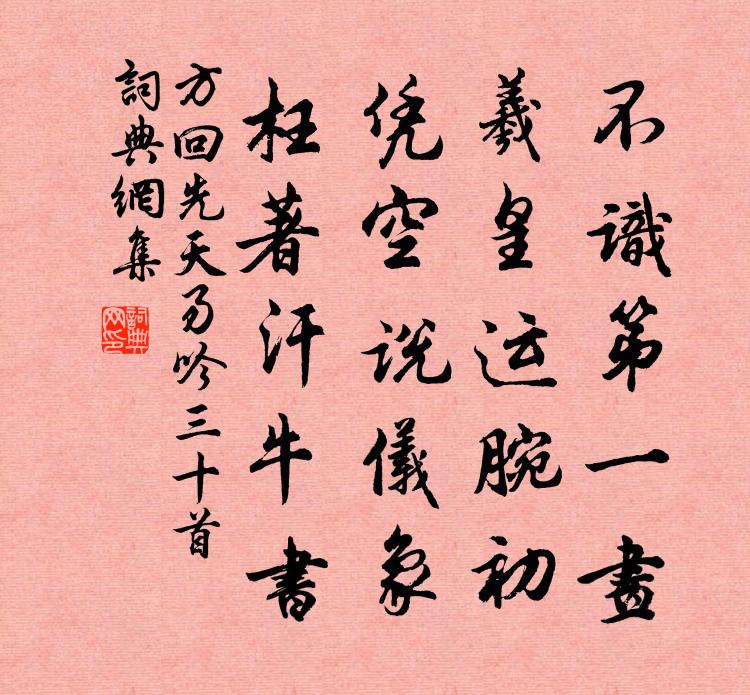 不識第一畫
羲皇运腕初
凭空說儀象
枉著汗牛書
方回先天易吟三十首
詞典網集
詞典网印